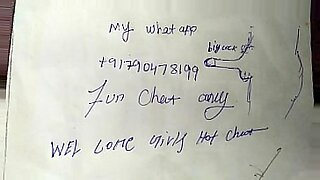 My whatapp
big cock
+91790478199
Fun Chat only
WEL COME girls Hot chat